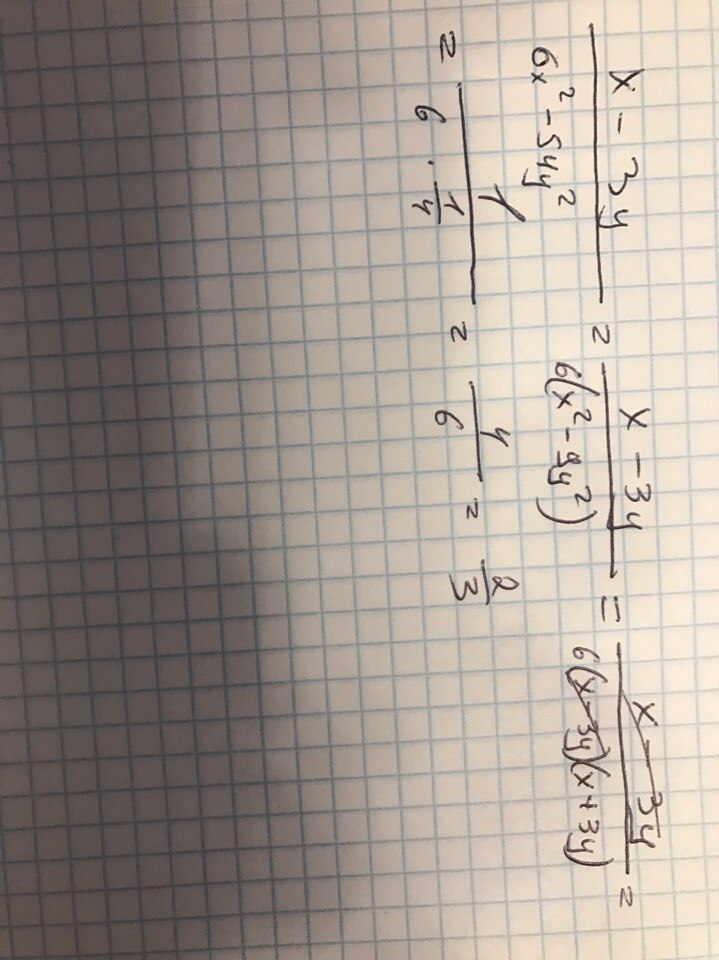 (x - 3y)/(6x² - 54y²) = (x - 3y)/(6(x² - 9y²)) = (x - 3y)/(6(x - 3y)(x + 3y)) =
= 1/(6 · 1/4) = 4/6 = 2/3